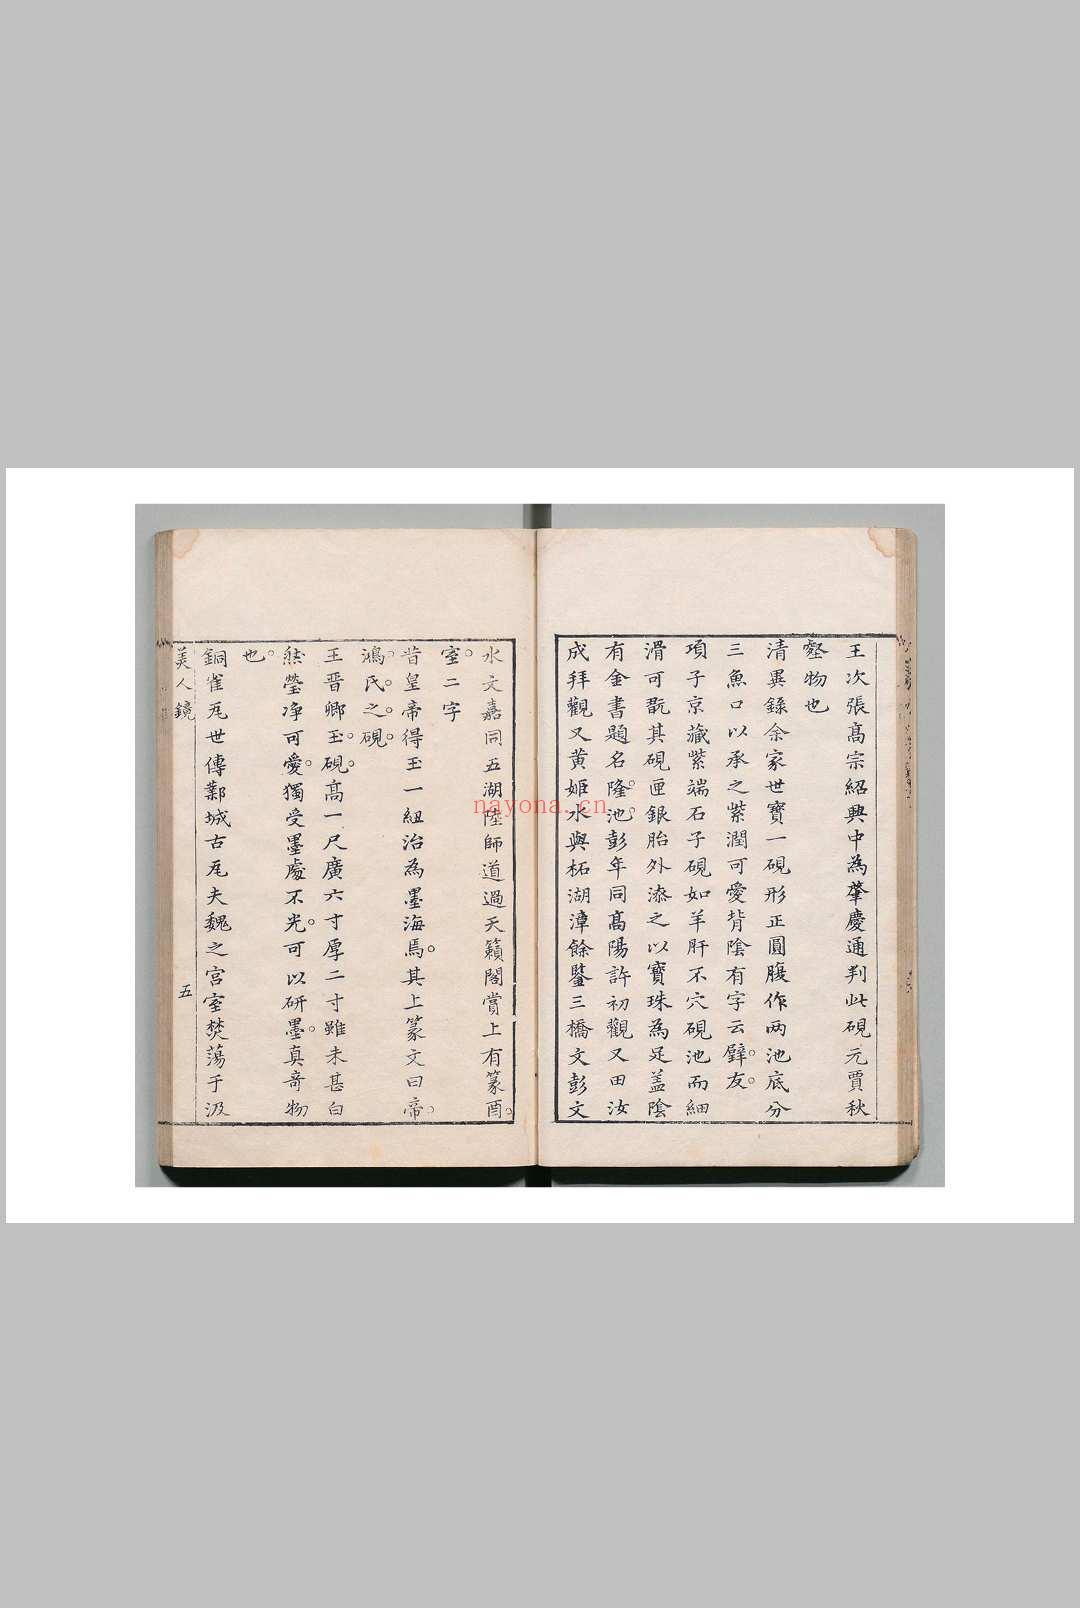 王次張高宗紹興中為肇慶通判此硯元賈秋
壑物也
清異錄余家世寶一硯形正圓腹作两池底分
三魚口以承之紫潤可愛背陰有字云璧友
項子京藏紫端石子硯如羊肝不穴硯池而細
滑可翫其硯匣銀胎外漆之以寶珠為足蓋陰
有金書題名隆池彭年同高陽許初觀又田汝
成拜觀又黄姬水與柘湖漳餘鑒三橋文彭文
水文嘉同五湖陸師道過天籟閣賞上有篆酉
室二字
昔皇帝得玉一紐治為墨海焉其上篆文曰帝
鴻氏之硯
王晋卿玉硯高一尺廣六寸厚二寸雖未甚白
然瑩净可愛獨受墨處不光可以研墨真竒物
也
銅雀瓦世傳鄴城古瓦夫魏之宫室焚蕩于汲
美人鏡
五
nayona.cn